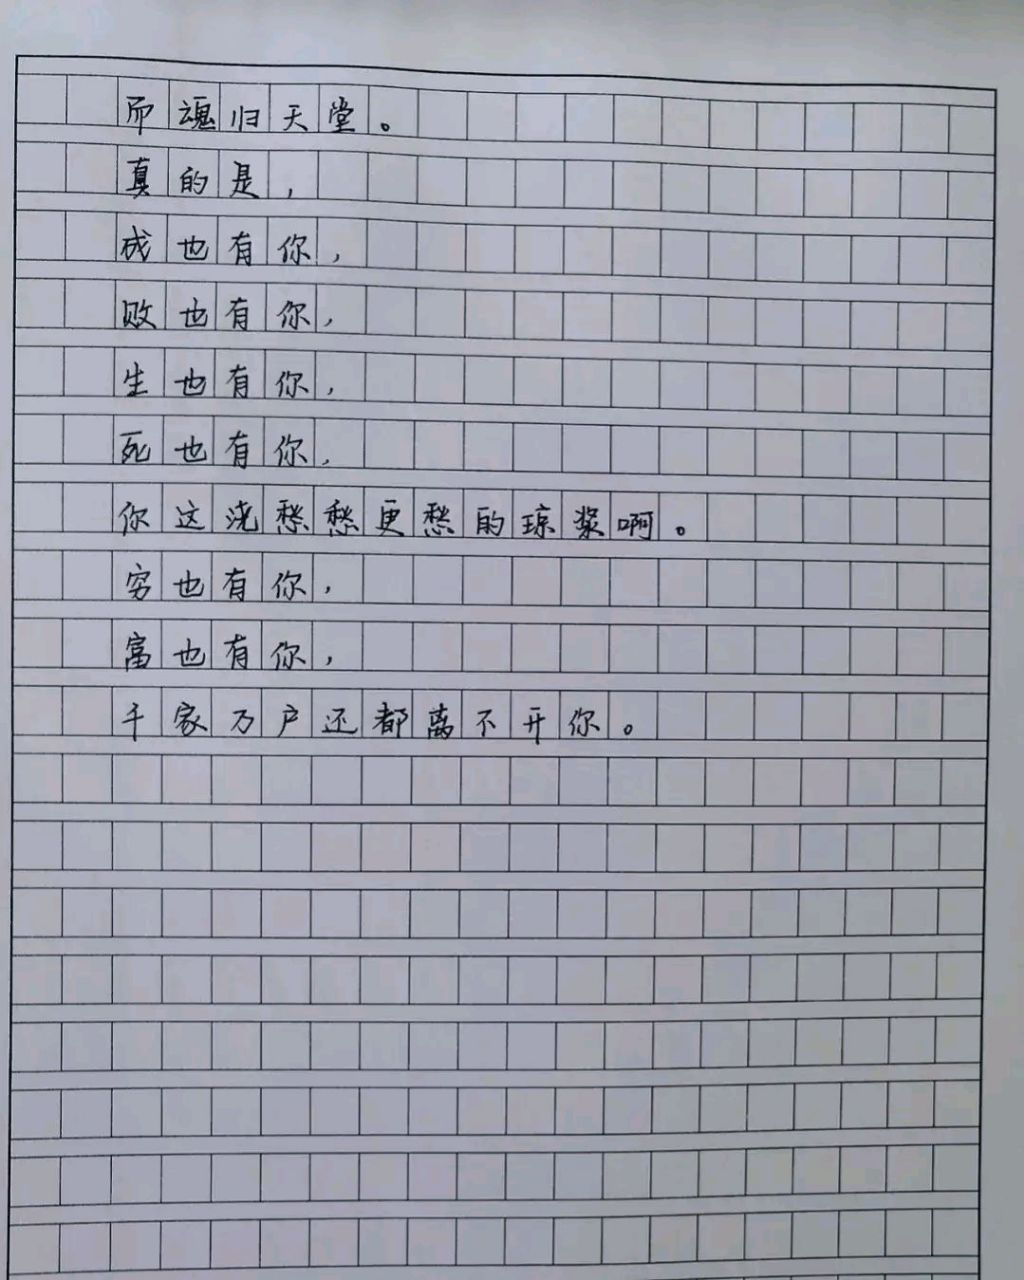 而魂归天堂。
真的是，
成也有你，
败也有你，
生也有你，
死也有你，
你这浇愁愁更愁的琼浆啊。
穷也有你，
富也有你，
千家万户还都离不开你。